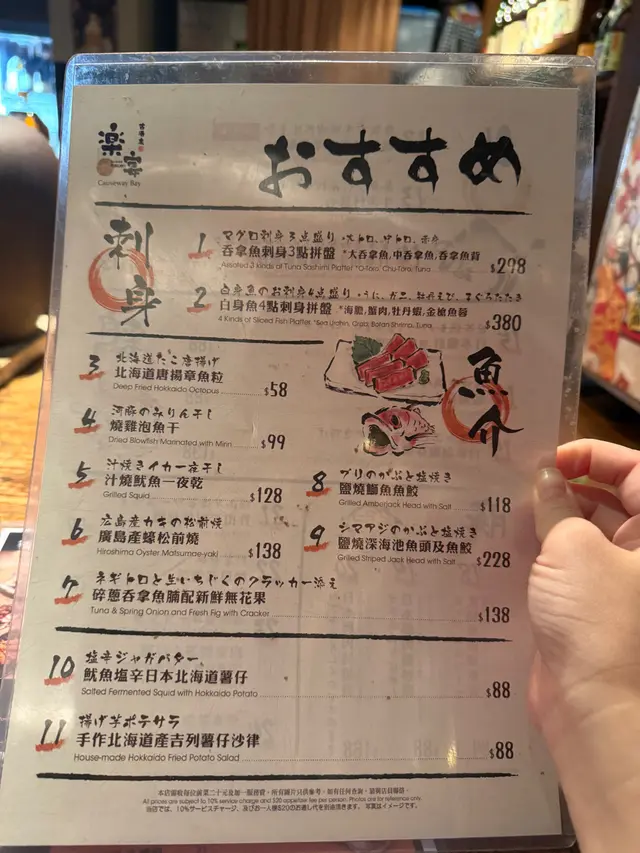 楽宴
Causeway Bay
おすすめ
刺身
1 マグロ刺身3点盛り・大トロ、中トロ、赤身
吞拿魚刺身3點拼盤 *大吞拿魚,中吞拿魚,吞拿魚背
Assorted 3 Kinds of Tuna Sashimi Platter *O-Toro, Chu-Toro, Tuna $298
2 白身魚のお刺身4点盛り・うに、カニ、牡丹えび、まぐろたたき
白身魚4點刺身拼盤 *海膽,蟹肉,牡丹蝦,金槍魚蓉
4 Kinds of Sliced Fish Platter *Sea Urchin, Crab, Botan Shrimp, Tuna $380
魚介
3 北海道たこ唐揚げ
北海道唐揚章魚粒
Deep Fried Hokkaido Octopus $58
4 河豚のみりん干し
燒雞泡魚干
Dried Blowfish Marinated with Mirin $99
5 汁焼きイカ一夜干し
汁燒魷魚一夜乾
Grilled Squid $128
6 広島産カキの松前焼
廣島產蠔松前燒
Hiroshima Oyster Matsumae-yaki $138
7 ネギトロと生いちじくのクラッカー添え
碎蔥吞拿魚腩配新鮮無花果
Tuna & Spring Onion and Fresh Fig with Cracker $138
8 ブリのかぶと塩焼き
鹽燒鰤魚魚鮫
Grilled Amberjack Head with Salt $118
9 シマアジのかぶと塩焼き
鹽燒深海池魚頭及魚鮫
Grilled Striped Jack Head with Salt $228
10 塩辛ジャガバター
魷魚塩辛日本北海道薯仔
Salted Fermented Squid with Hokkaido Potato $88
11 揚げ芋ポテサラ
手作北海道產吉列薯仔沙律
House-made Hokkaido Fried Potato Salad $88
All prices are subject to 10% service charge and $20 appetizer fee per person. Photos are for reference only.
当店では、10%サービスチャージ、及びお一人様$20のお通し代を別途頂きます。写真はイメージです。